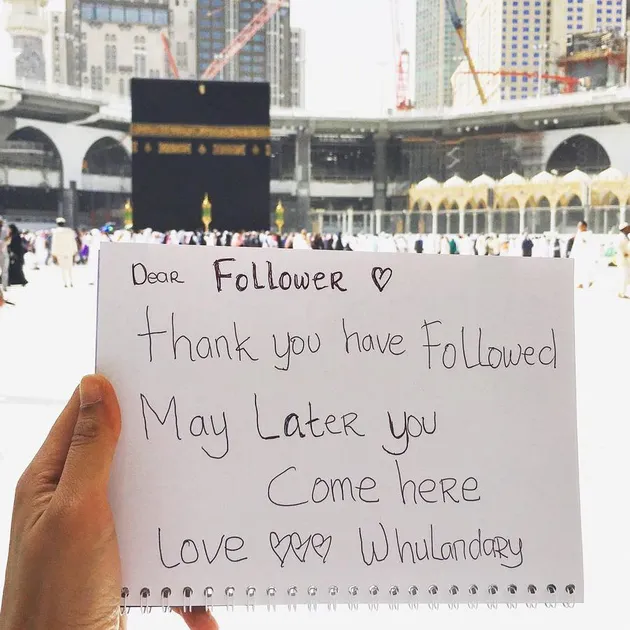 Dear Follower ♡
thank you have Followed
May Later you
Come here
Love ♡♡♡ Whulandary